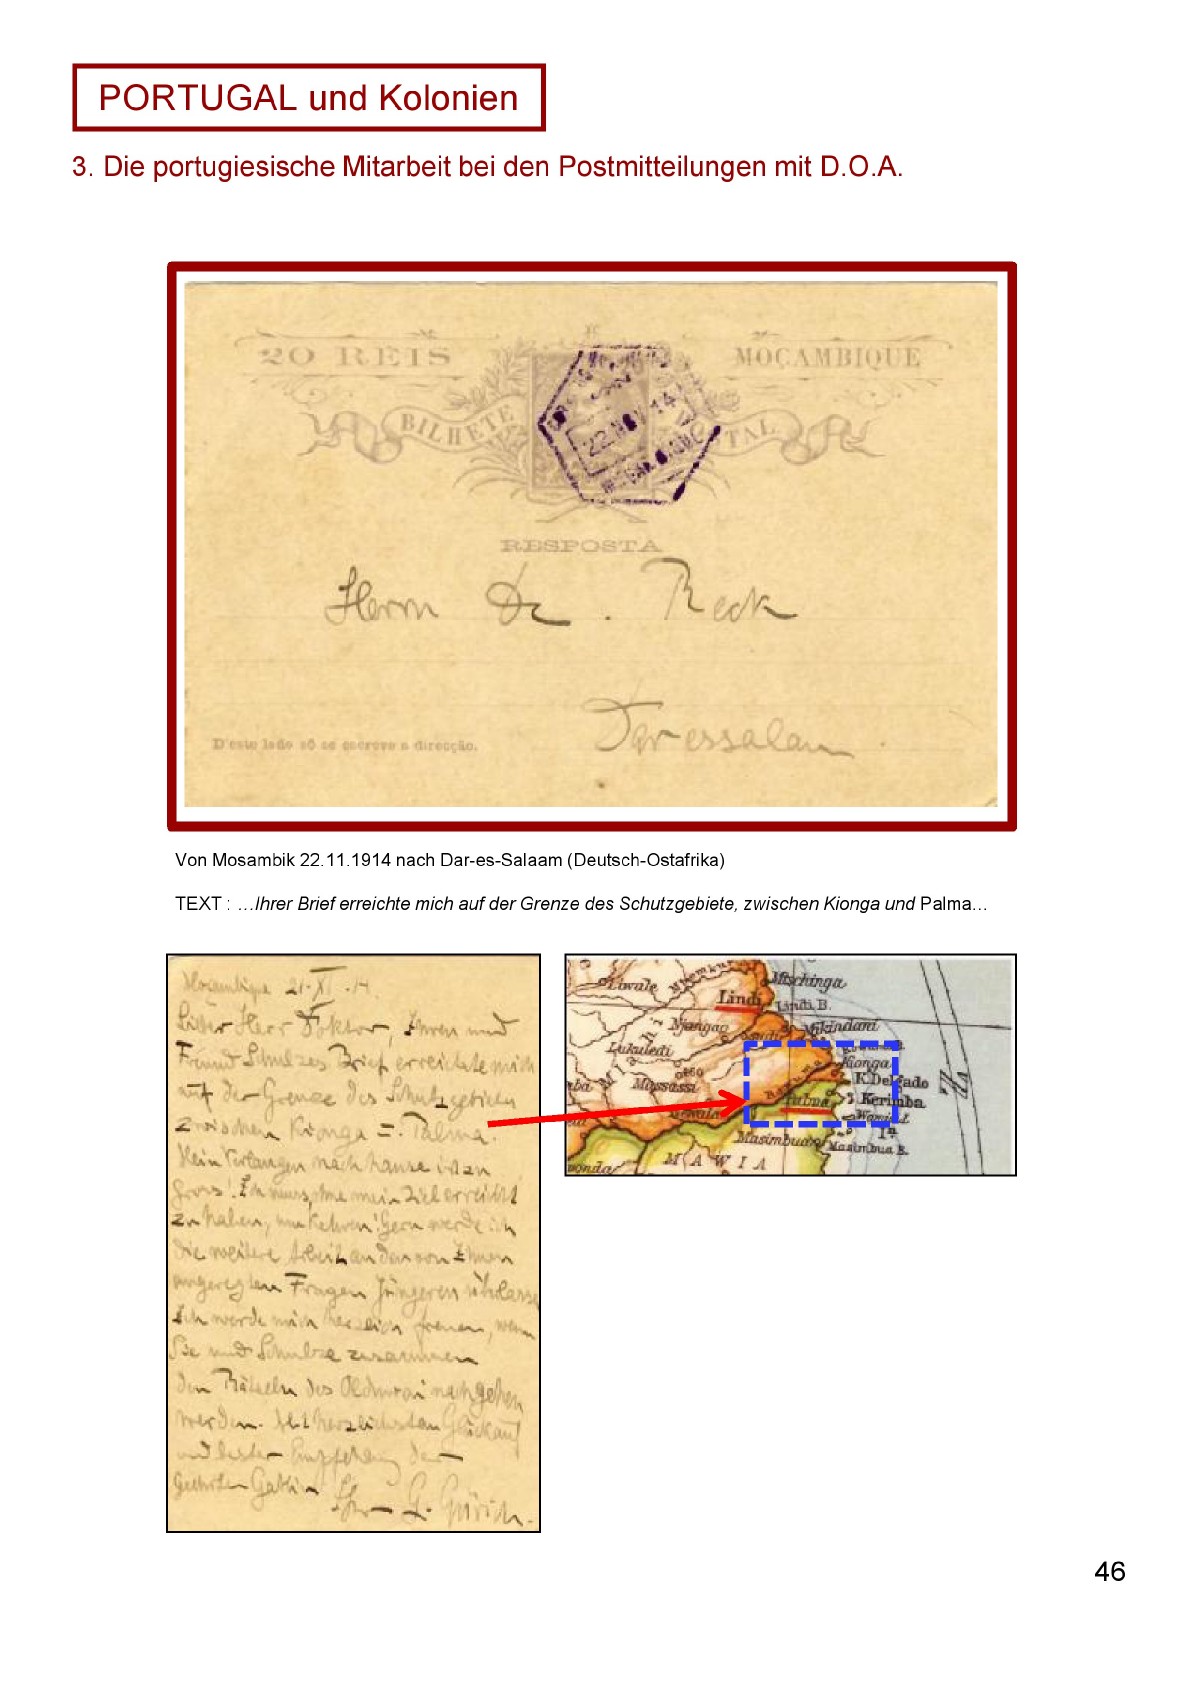 PORTUGAL und Kolonien
3. Die portugiesische Mitarbeit bei den Postmitteilungen mit D.O.A.
20 REIS
MOÇAMBIQUE
BILHETE POSTAL
22.NOV 14
RESPOSTA
Herrn Dr. Reck
Daressalam
D'este lado só se escreve a direcção.
Von Mosambik 22.11.1914 nach Dar-es-Salaam (Deutsch-Ostafrika)
TEXT : …Ihrer Brief erreichte mich auf der Grenze des Schutzgebiete, zwischen Kionga und Palma…
Moçambique 21.XI.14.
Lieber Herr Doktor, Ihren und
Freund Schulzes Brief erreichte mich
auf der Grenze des Schutzgebietes
zwischen Kionga Palma.
Mein Verlangen nach hause ist
gross! Ich muss, ohne mein Ziel erreicht
zu haben, umkehren! Gern werde ich
die weitere Arbeit an den von Ihnen
angeregten Fragen Jüngeren
Ich werde mich herzlich freuen, wenn
Sie und Schulze zusammen
den Rätseln des Olduvai nachgehen
werden. herzlichsten Glückauf
und bester Empfehlung der
geehrten Gattin Ihr G. Gürich.
Liwale
Mtschinga
Lindi
Lindi B.
Njangao
Mikindani
Lukuledi
Kionga
Massassi
K. Delgado
Kerimba
Masimbua
Masimbua B.
MAWIA
46